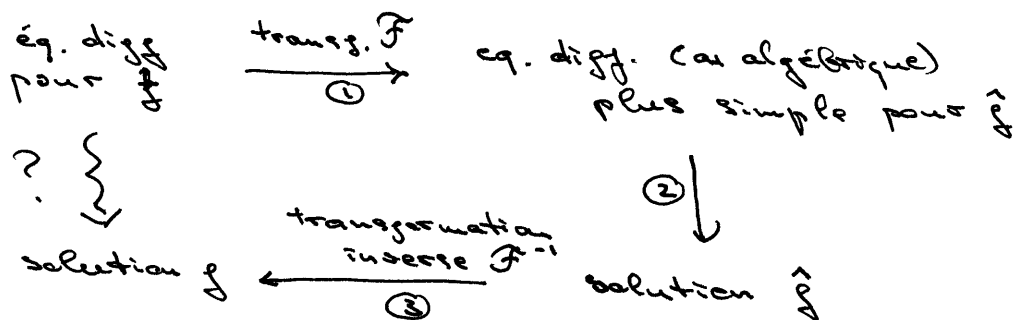 éq. diff
pour f
transf. F
①
eq. diff. (ou algébrique)
plus simple pour f̂
?
②
transformation
inverse F⁻¹
③
solution f
solution f̂